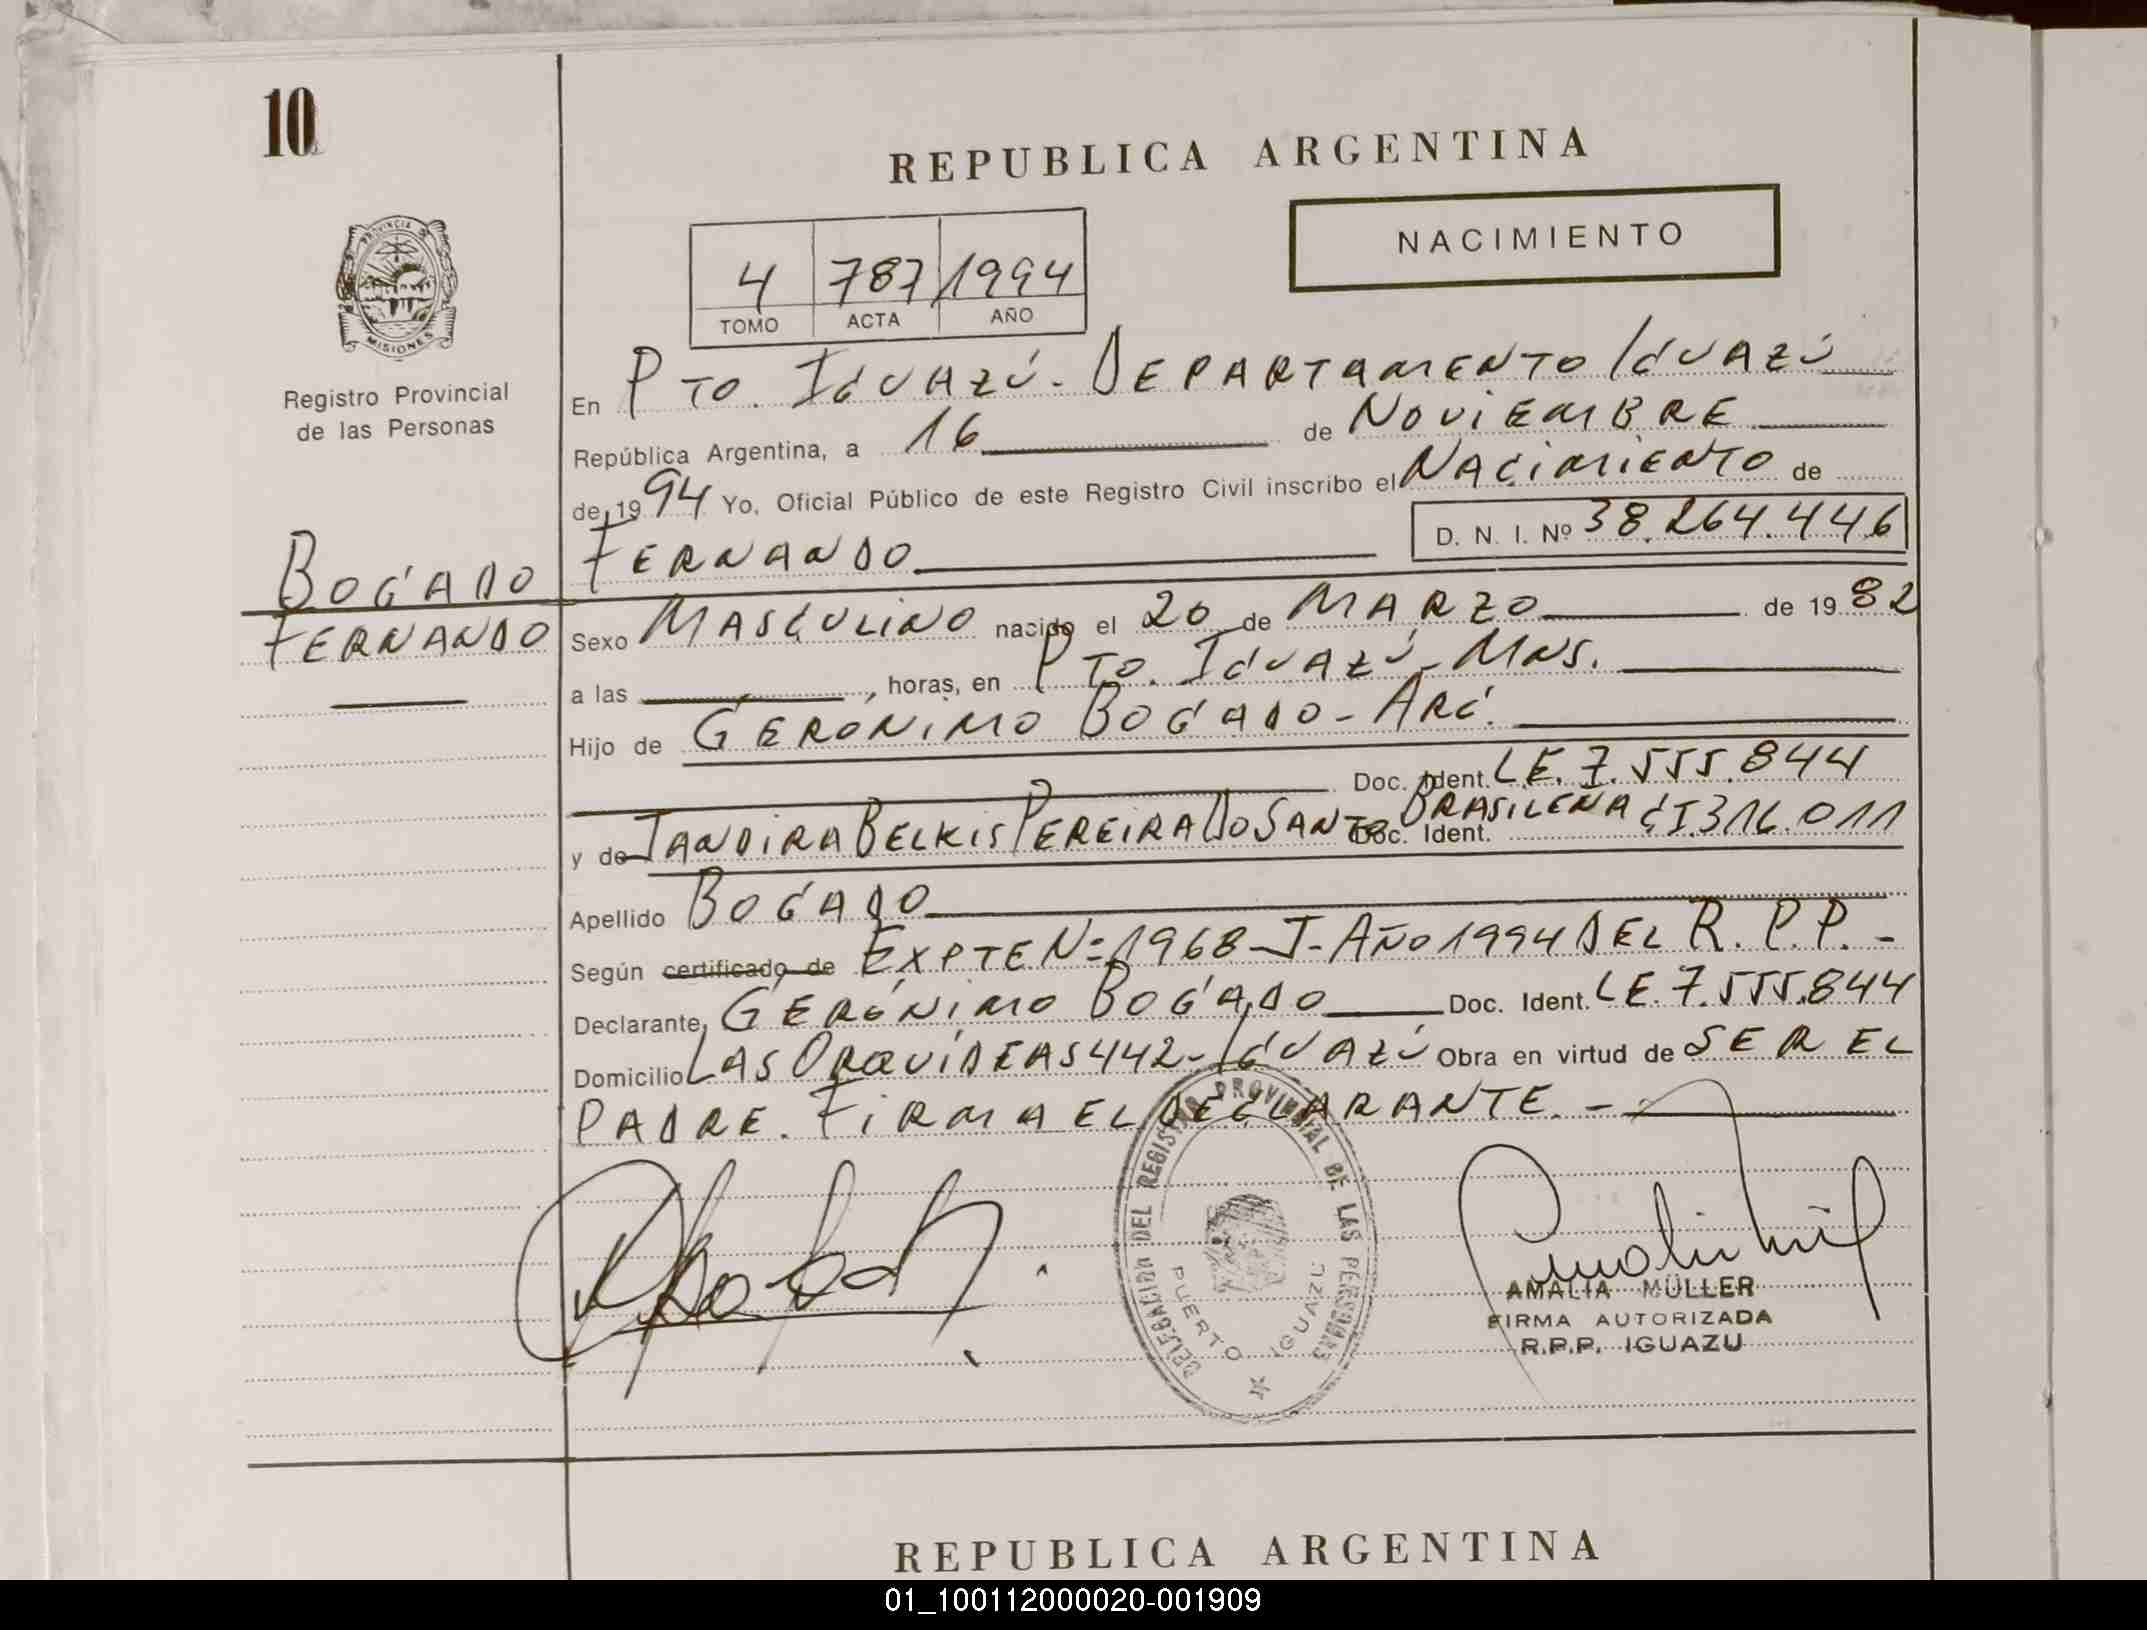 10
REPUBLICA ARGENTINA
NACIMIENTO
4 787 1994
TOMO ACTA AÑO
PROVINCIA DE
MISIONES
Registro Provincial
de las Personas
En PTO. IGUAZÚ - DEPARTAMENTO IGUAZÚ
República Argentina, a 16 de NOVIEMBRE
de 1994 Yo, Oficial Público de este Registro Civil inscribo el NACIMIENTO de
D. N. I. Nº 38.264.446
BOGADO FERNANDO
FERNANDO Sexo MASCULINO nacido el 20 de MARZO de 1982
a las , horas, en PTO. IGUAZÚ - MNS.
Hijo de GERÓNIMO BOGADO - ARG.
Doc. Ident. LE. 7.555.844
y de JANDIRA BELKIS PEREIRA DO SANTO BRASILEÑA Doc. Ident. CI 316.011
Apellido BOGADO
Según certificado de EXPTE Nº 1968-J-AÑO 1994 DEL R.P.P. -
Declarante, GERÓNIMO BOGADO Doc. Ident. LE. 7.555.844
Domicilio LAS ORQUÍDEAS 442 - IGUAZÚ Obra en virtud de SER EL
PADRE. FIRMA EL DECLARANTE. -
DELEGACION DEL REGISTRO PROVINCIAL DE LAS PERSONAS
PUERTO IGUAZU
AMALIA MÜLLER
FIRMA AUTORIZADA
R.P.P. IGUAZU
REPUBLICA ARGENTINA
01_100112000020-001909